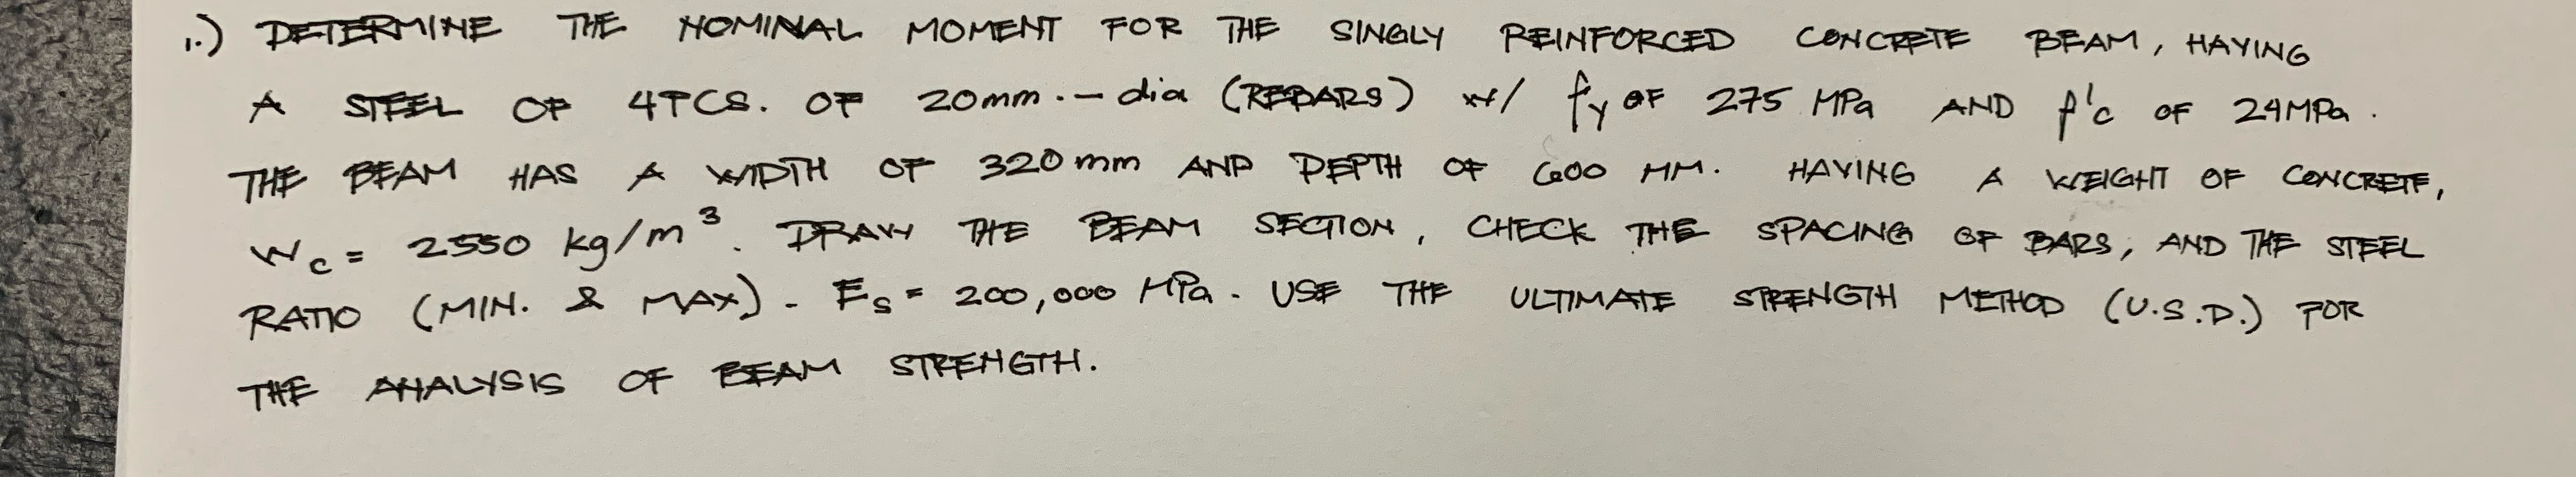 1.) DETERMINE THE NOMINAL MOMENT FOR THE SINGLY REINFORCED CONCRETE BEAM, HAVING
A STEEL OF 4PCS. OF 20mm.-dia (REBARS) w/ fy OF 275 MPa AND f'c OF 24MPa.
THE BEAM HAS A WIDTH OF 320mm AND DEPTH OF 600 MM. HAVING A WEIGHT OF CONCRETE,
Wc = 2550 kg/m³. DRAW THE BEAM SECTION, CHECK THE SPACING OF BARS, AND THE STEEL
RATIO (MIN. & MAX). Es = 200,000 MPa. USE THE ULTIMATE STRENGTH METHOD (U.S.D.) FOR
THE ANALYSIS OF BEAM STRENGTH.